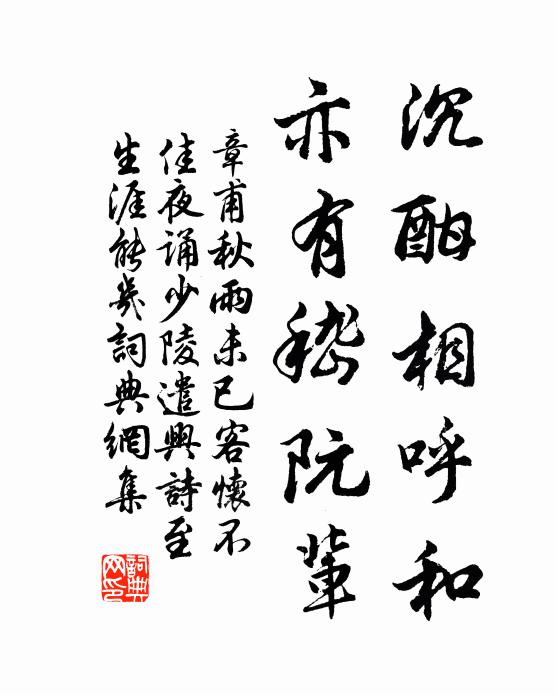 沉酣相呼和
亦有嵇阮輩
章甫秋雨未已客懷不
佳夜誦少陵遣興詩至
生涯能幾詞典網集
詞典
网印